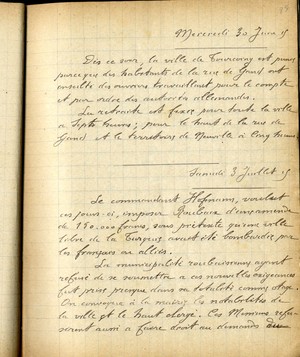 Mercredi 30 Juin 15
Dès ce soir, la ville de Tourcoing est punie
parce que des habitants de la rue de Gand ont
insulté des ouvriers travaillant pour le compte
et par ordre des autorités allemandes.
La retraite est fixée pour toute la ville
à Sept heures; pour le haut de la rue de
Gand et le territoire de Neuville à Cinq heures
Samedi 3 Juillet 15
Le commandant Hofmann, voulait
ces jours-ci, imposer Roubaix d'une amende
de 150.000 francs, sous prétexte qu'une ville
de la Turquie avait été bombardée par
les français ou alliés.
La municipalité roubaisienne ayant
refusé de se soumettre à ces nouvelles exigences
fut prise presque dans sa totalité comme otage.
On convoqua à la mairie les notabilités de
la ville et le haut clergé. Ces Messieurs refu-
sèrent aussi à faire droit au demandes du